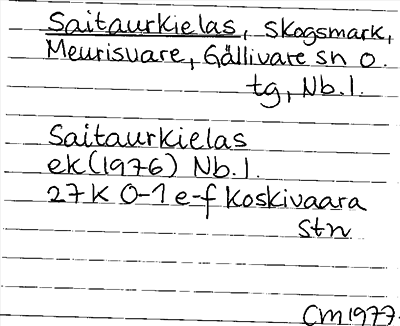 Saitaurkielas, skogsmark,
Meurisvare, Gällivare sn o.
tg, Nb.l.
Saitaurkielas
ek (1976) Nb.l.
27K 0-1 e-f Koskivaara
stn
CM 1977.